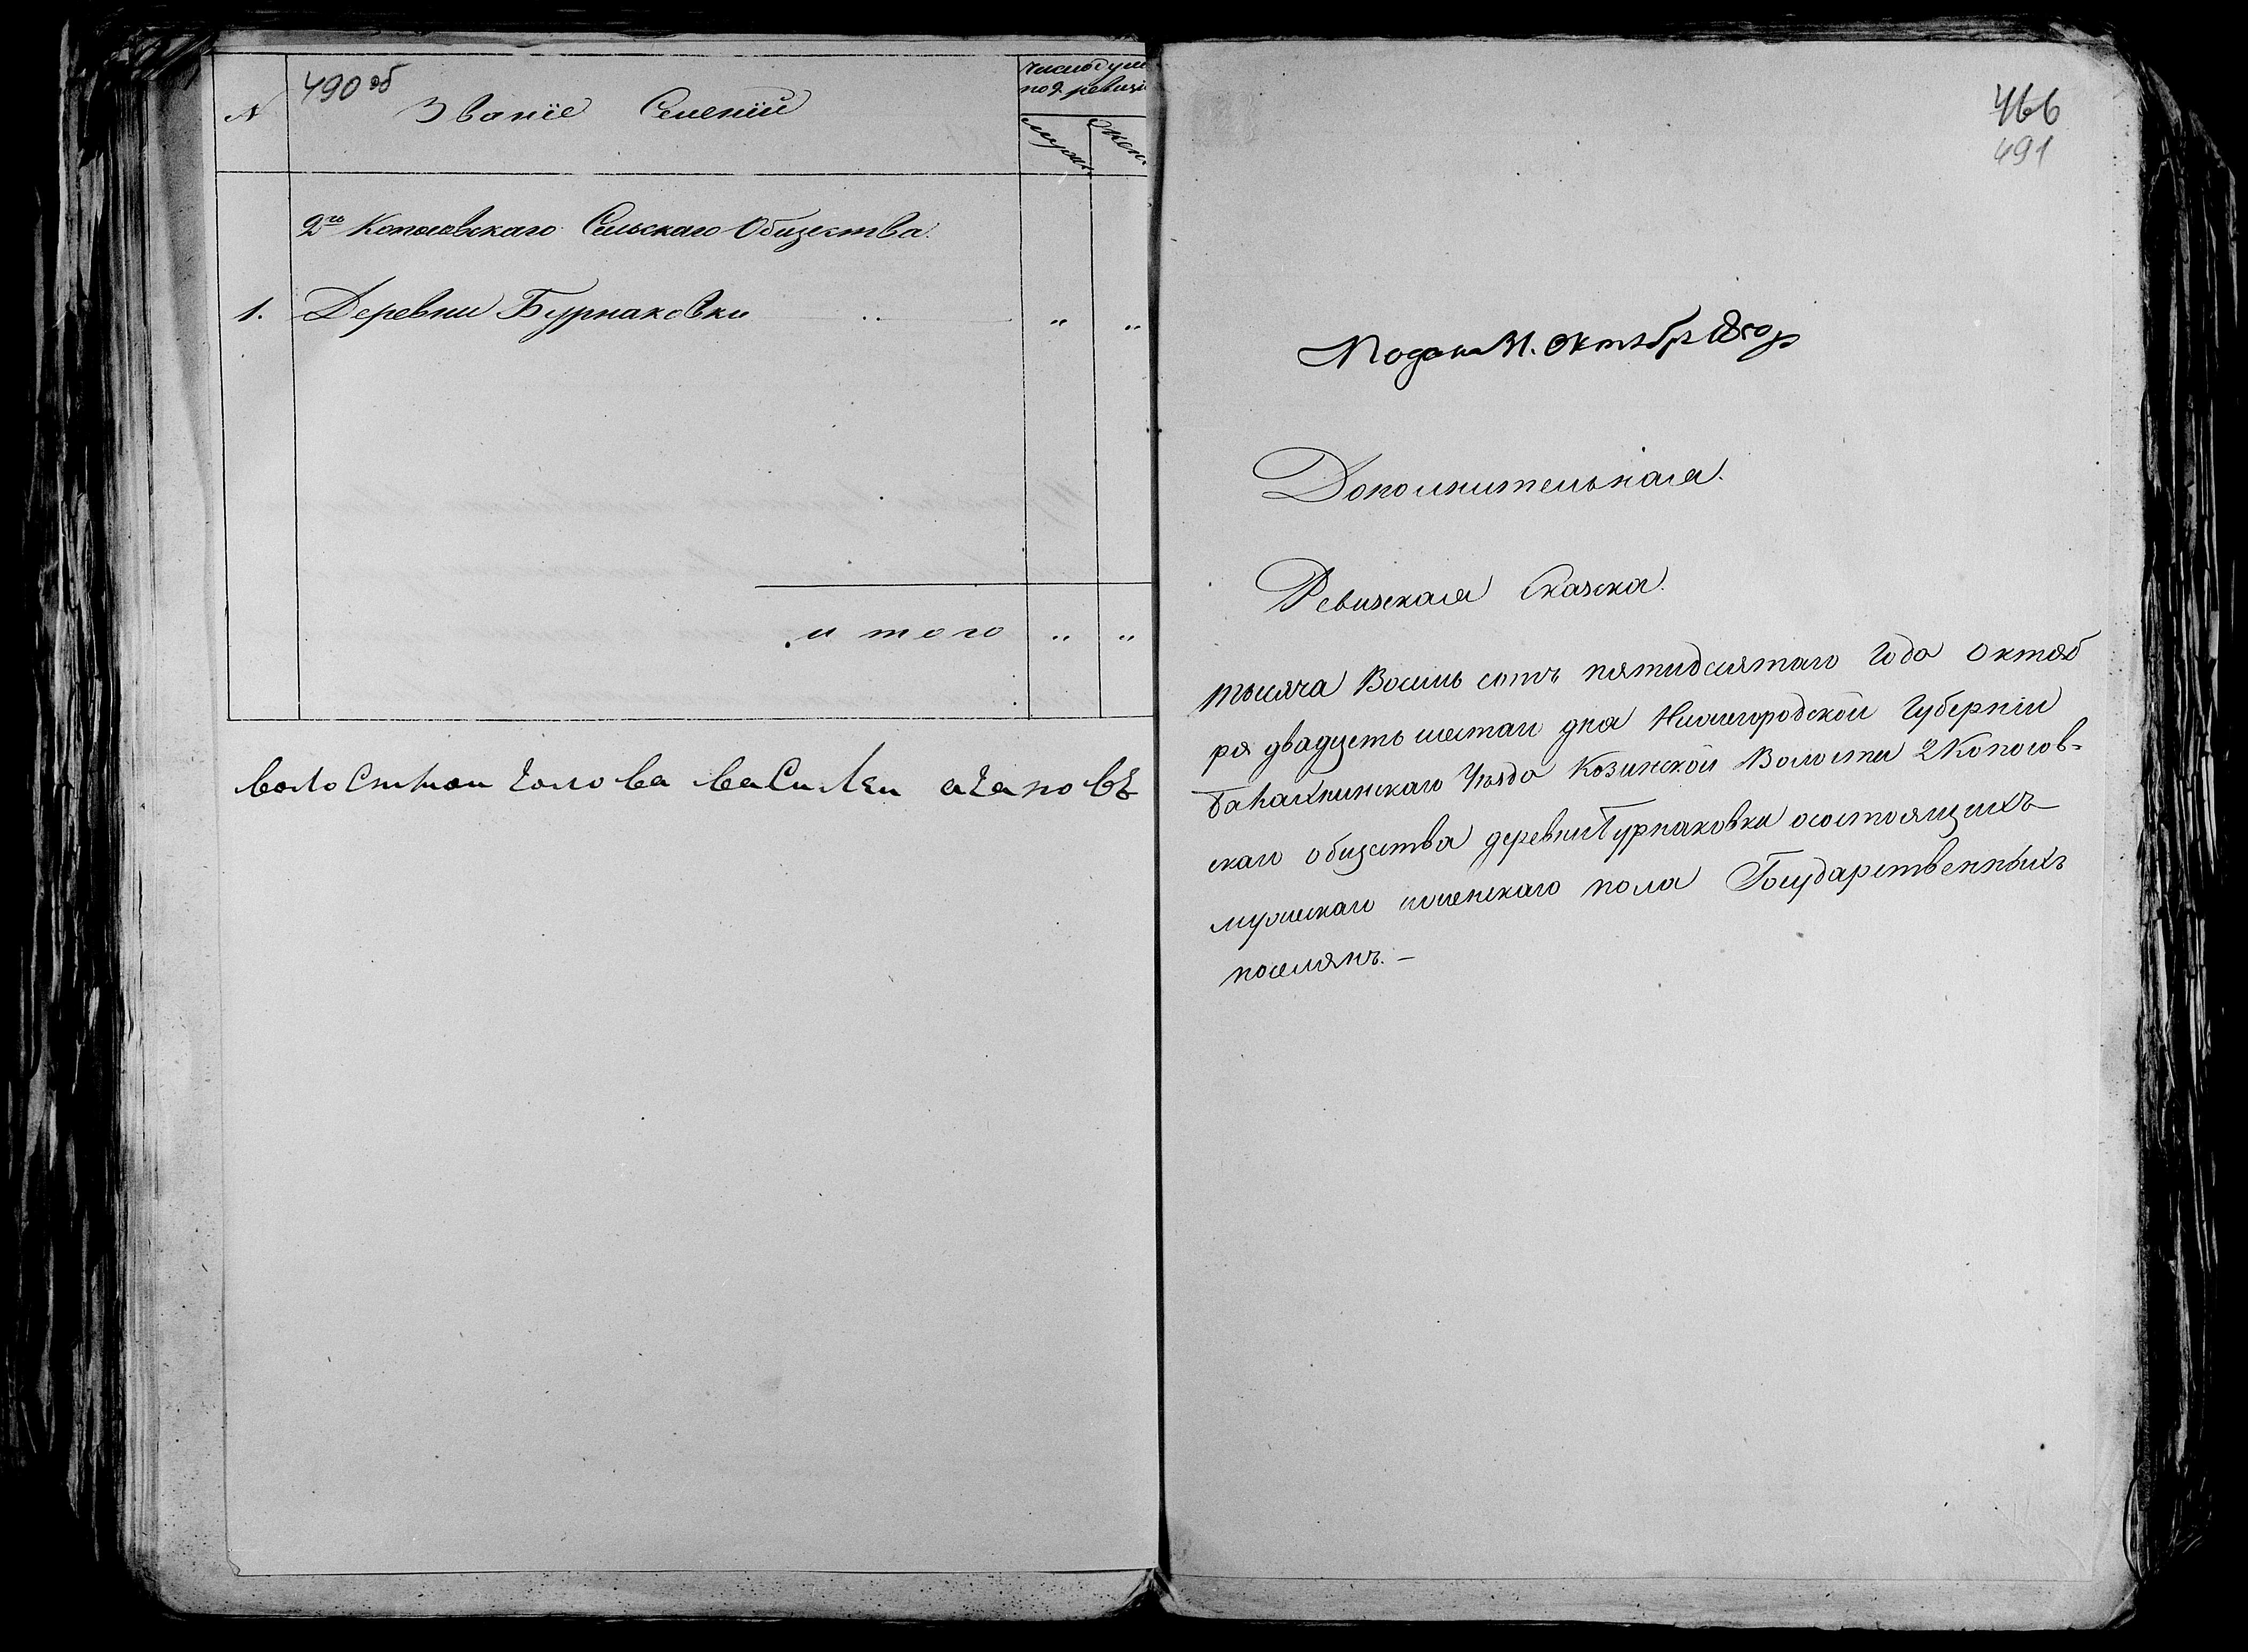 490 об
№
Званіе Селеній
число душ
по 9 ревизі
муж.
жен.
2го Копосовскаго Сельскаго Общества.
1. Деревни Бурнаковки " "
и того " "
волостнои голова василеи агаповъ
466
491
Подана 31. Октября 1850 г
Дополнительная.
Ревизская Сказка.
тысяча Восемь сотъ пятидесятаго Года октяб
ря двадцеть шестаго дна Нижегородской Губерніи
Балахнинскаго Уѣзда Козинской Волости 2 Копосов-
скаго общества деревни Бурнаковки осостоящихъ
мужескаго иженскаго пола Государственныхъ
поселянъ. –